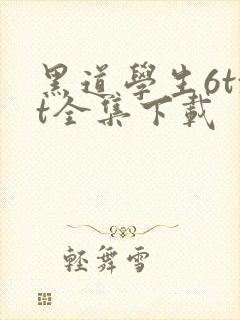 黑道學生6tx
t全集下載
輕舞雪